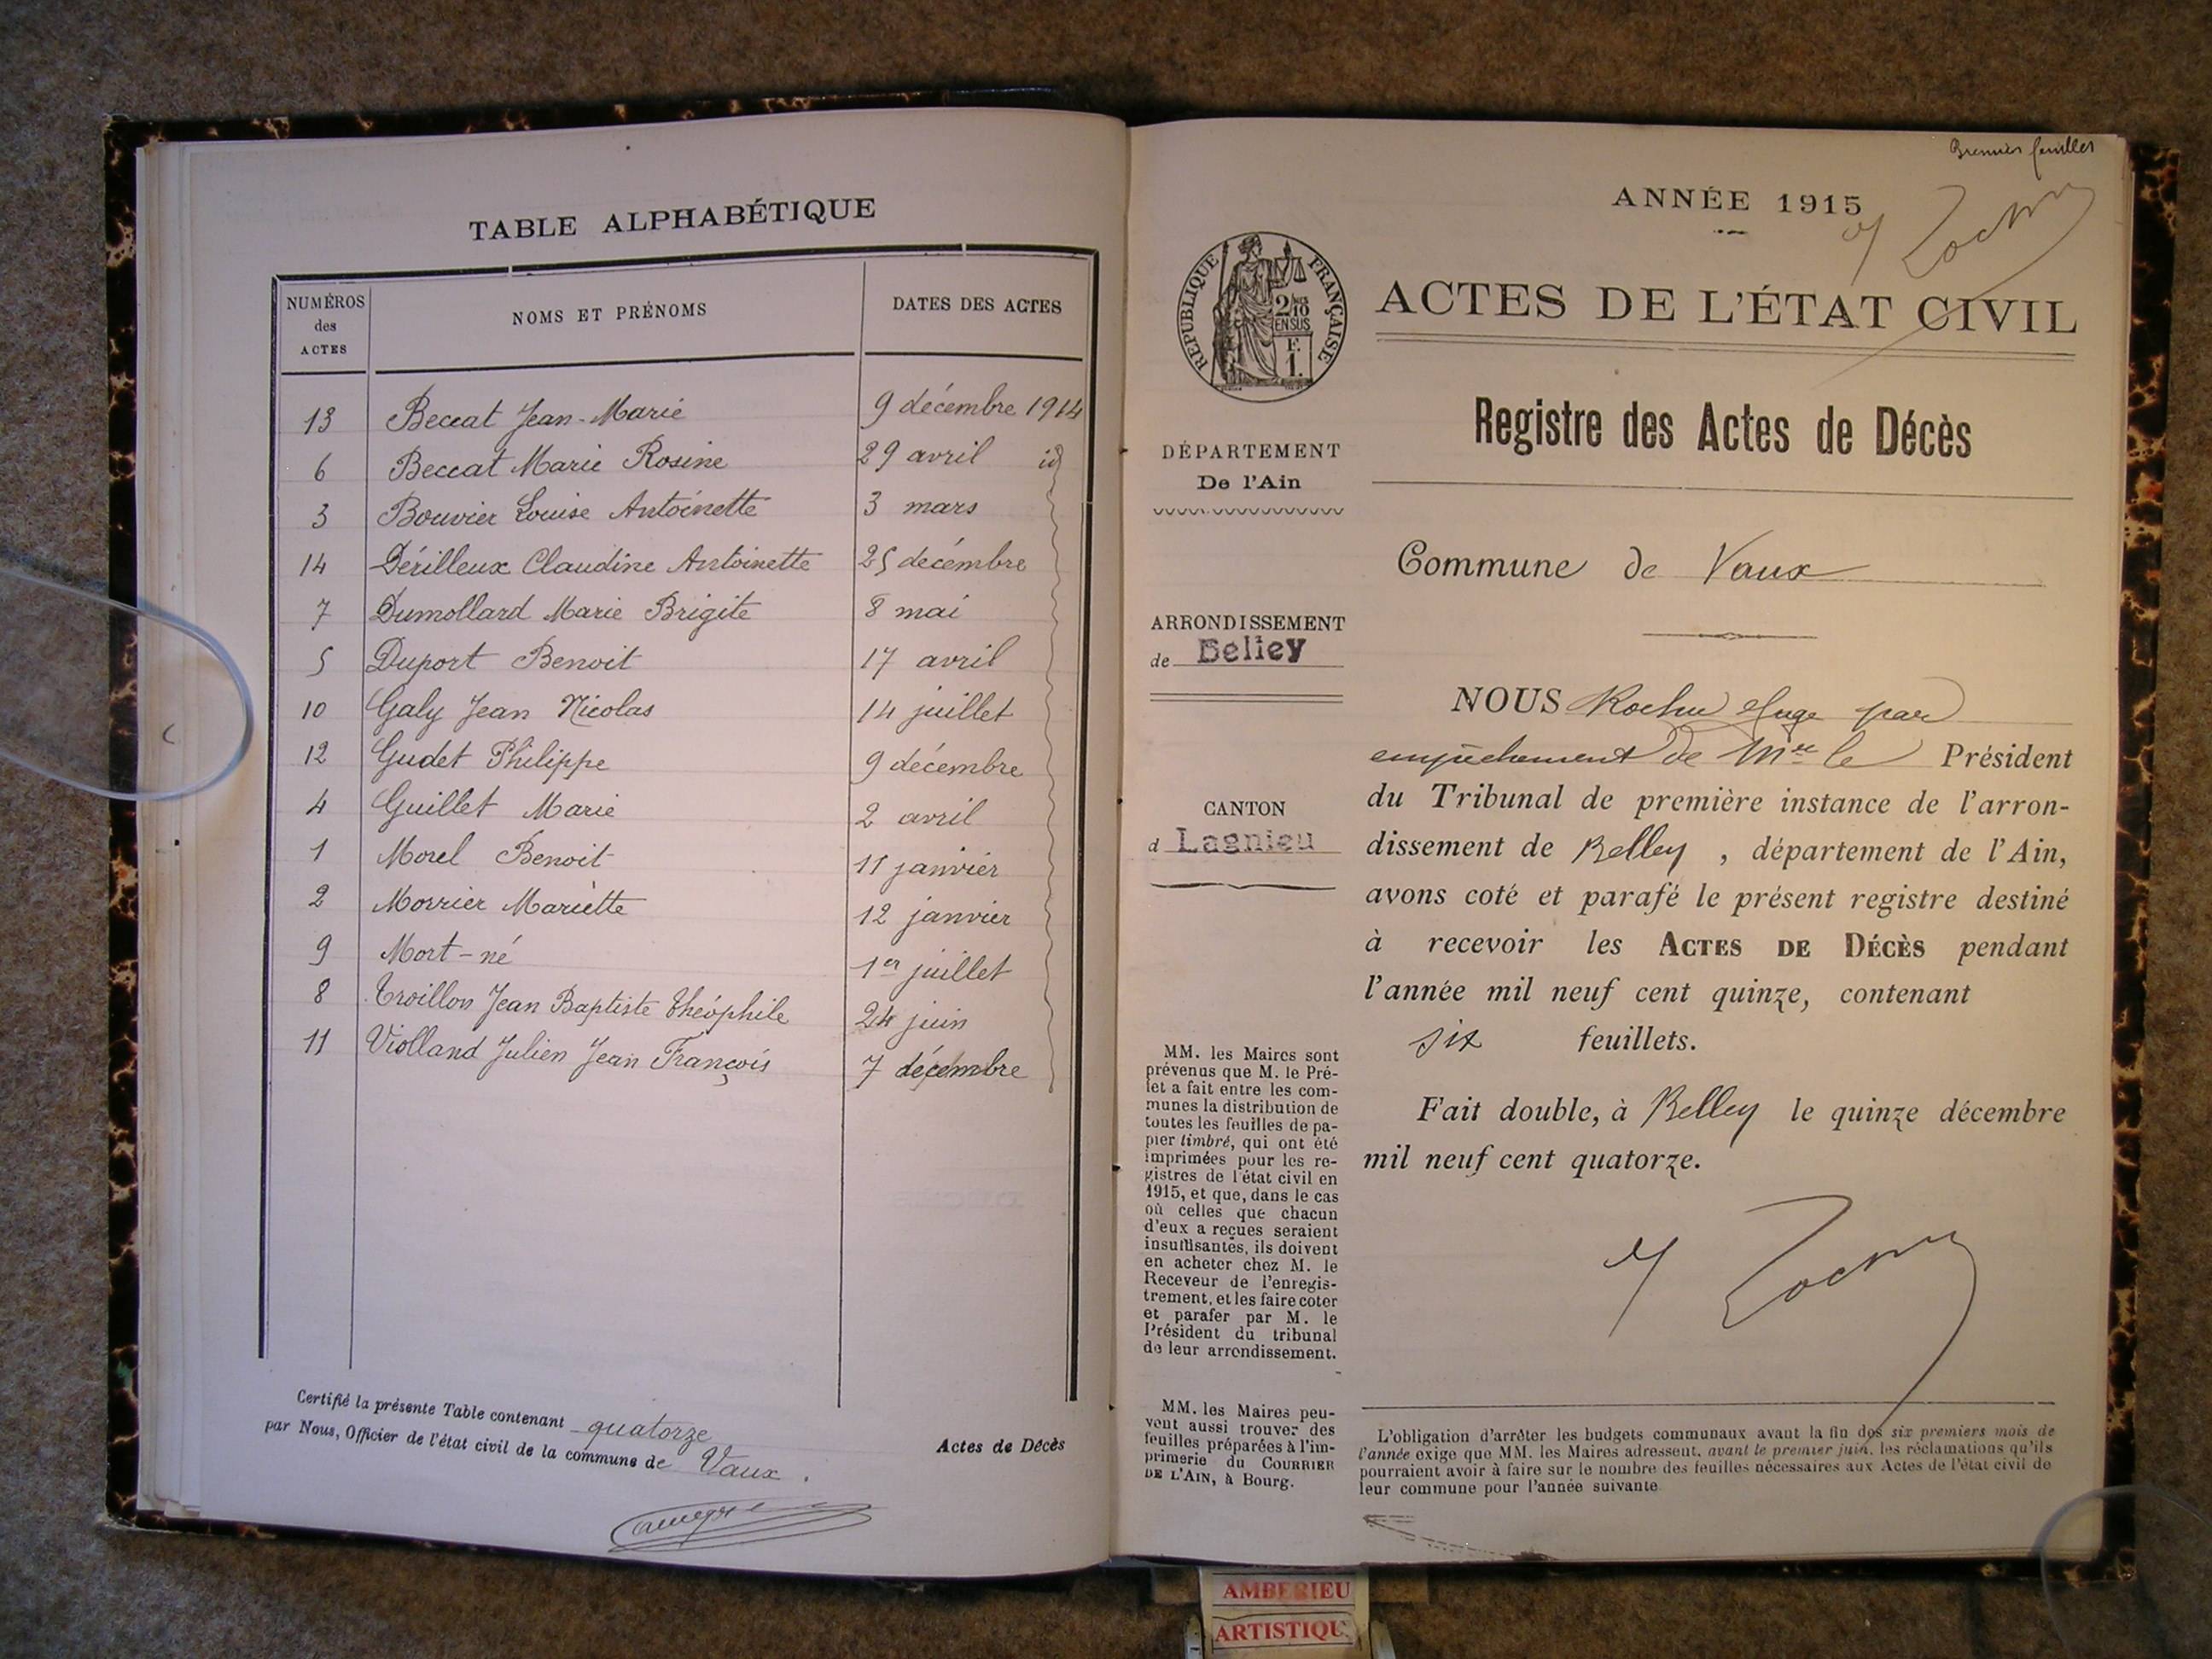 TABLE ALPHABÉTIQUE
NUMÉROS des ACTES
NOMS ET PRÉNOMS
DATES DES ACTES
13 Beccat Jean-Marie 9 décembre 1914
6 Beccat Marie Rosine 29 avril id
3 Bouvier Louise Antoinette 3 mars
14 Dérilleux Claudine Antoinette 25 décembre
7 Dumollard Marie Brigite 8 mai
5 Duport Benoit 17 avril
10 Galy Jean Nicolas 14 juillet
12 Gudet Philippe 9 décembre
4 Guillet Marie 2 avril
1 Morel Benoit 11 janvier
2 Morrier Mariette 12 janvier
9 Mort-né 1er juillet
8 Troillon Jean Baptiste Théophile 24 juin
11 Violland Julien Jean François 7 décembre
Certifié la présente Table contenant quatorze
par Nous, Officier de l'état civil de la commune de Vaux.
Actes de Décès
Premier feuillet
ANNÉE 1915
RÉPUBLIQUE FRANÇAISE
2/10
EN SUS
F.
1.
ACTES DE L'ÉTAT CIVIL
Registre des Actes de Décès
DÉPARTEMENT
De l'Ain
ARRONDISSEMENT
de Belley
CANTON
d Lagnieu
MM. les Maires sont
prévenus que M. le Pré-
fet a fait entre les com-
munes la distribution de
toutes les feuilles de pa-
pier timbré, qui ont été
imprimées pour les re-
gistres de l'état civil en
1915, et que, dans le cas
où celles que chacun
d'eux a reçues seraient
insuffisantes, ils doivent
en acheter chez M. le
Receveur de l'enregis-
trement, et les faire coter
et parafer par M. le
Président du tribunal
de leur arrondissement.
MM. les Maires peu-
vent aussi trouver des
feuilles préparées à l'im-
primerie du COURRIER
DE L'AIN, à Bourg.
Commune de Vaux
NOUS Juge par
empêchement de Mr le Président
du Tribunal de première instance de l'arron-
dissement de Belley, département de l'Ain,
avons coté et parafé le présent registre destiné
à recevoir les ACTES DE DÉCÈS pendant
l'année mil neuf cent quinze, contenant
six feuillets.
Fait double, à Belley le quinze décembre
mil neuf cent quatorze.
L'obligation d'arrêter les budgets communaux avant la fin des six premiers mois de
l'année exige que MM. les Maires adressent, avant le premier juin, les réclamations qu'ils
pourraient avoir à faire sur le nombre des feuilles nécessaires aux Actes de l'état civil de
leur commune pour l'année suivante
AMBERIEU
ARTISTIQU